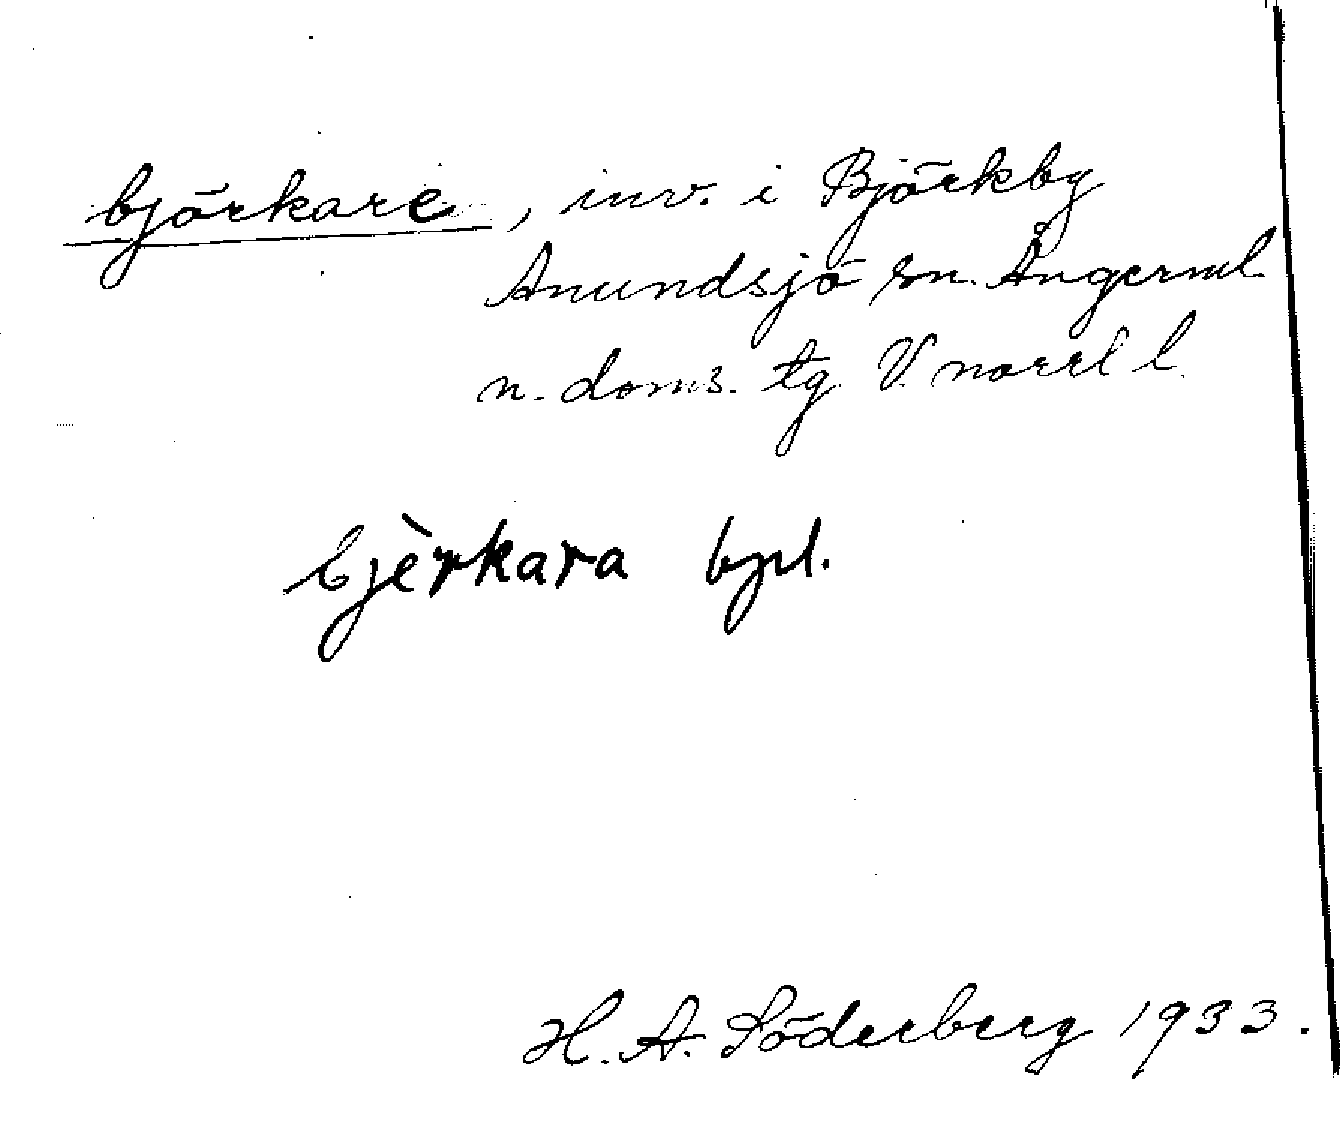 björkare, inv. i Björkby
Anundsjö sn. Ångerml.
n. doms. tg V. norrl l.
bjèrkara bpl.
H. A. Söderberg 1933.